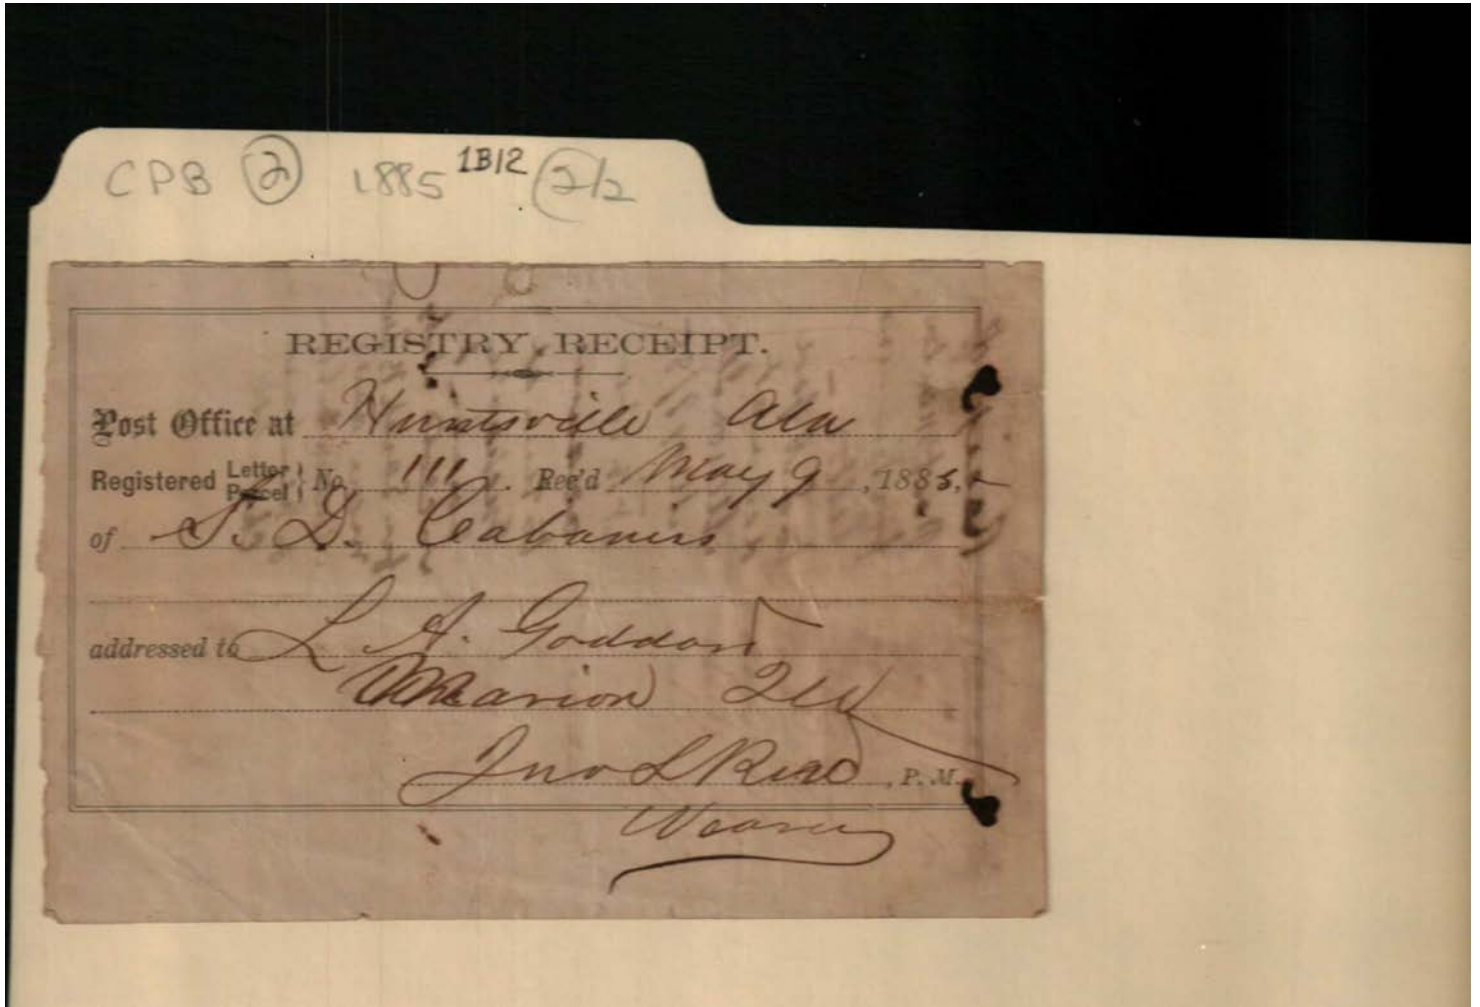 CPB 2 1885 1B12 2/2
REGISTRY RECEIPT.
Post Office at Huntsville Ala
Registered Letter Parcel No. 111. Rec'd May 9, 1885,
of S. D. Cabaniss
addressed to L A. Goddard
Marion Ill
Jno L Read, P. M.
Weaver